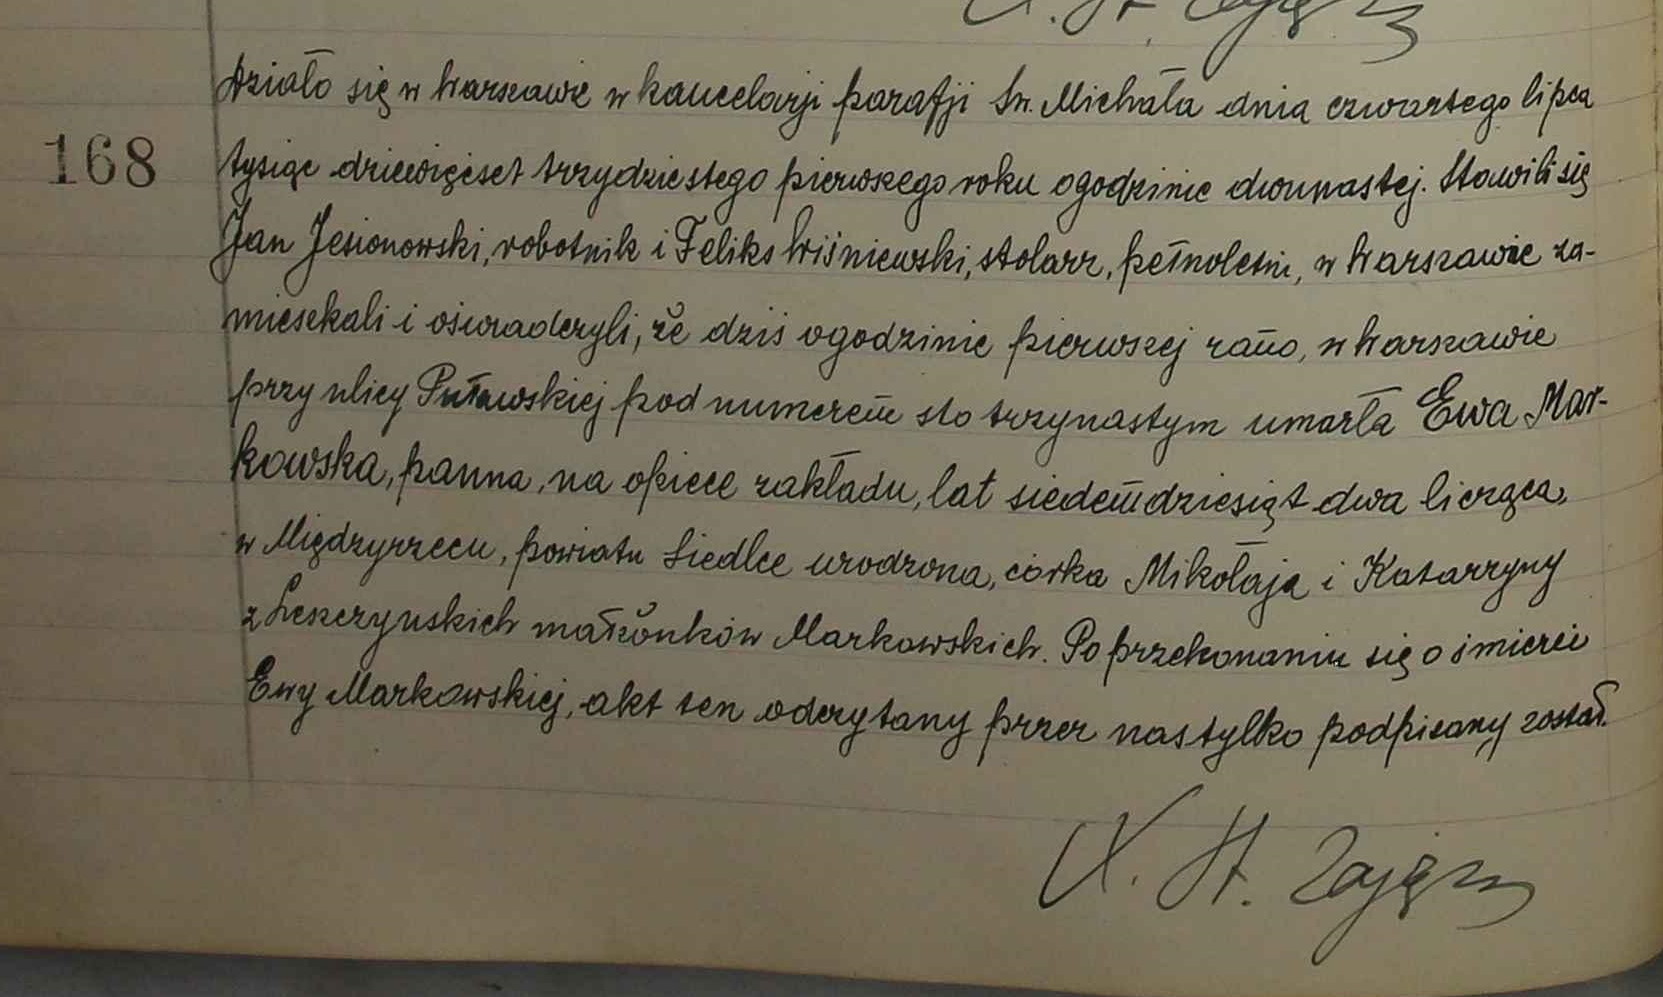 X. St. Zając
Działo się w Warszawie w kancelarji parafji Św. Michała dnia czwartego lipca
168
tysiąc dziewięćset trzydziestego pierwszego roku o godzinie dwunastej. Stawili się
Jan Jesionowski, robotnik i Feliks Wiśniewski, stolarz, pełnoletni, w Warszawie za-
mieszkali i oświadczyli, że dziś o godzinie pierwszej rano, w Warszawie
przy ulicy Puławskiej pod numerem sto trzynastym umarła Ewa Mar-
kowska, panna, na opiece zakładu, lat siedemdziesiąt dwa licząca,
w Międzyrzecu, powiatu Siedlce urodzona, córka Mikołaja i Katarzyny
z Leszczyńskich małżonków Markowskich. Po przekonaniu się o śmierci
Ewy Markowskiej, akt ten odczytany przez nas tylko podpisany został.
X. St. Zając